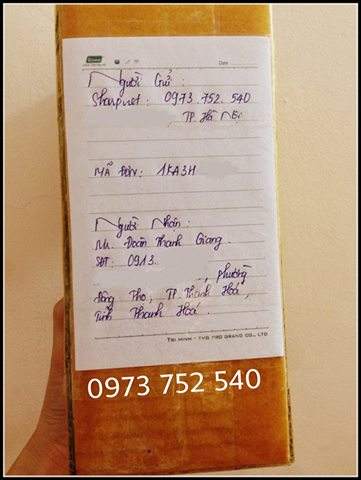 Date
Người Gửi :
Sharpviet : 0973.752.540
TP. Hà Nội
MÃ ĐƠN : 1KA3H
Người Nhận :
Mr. Đoàn Thanh Giang.
SĐT : 0913.
, phường
Đông Thọ, TP. Thanh Hoá,
Tỉnh Thanh Hoá.
TRI MINH - TMG PRO GRAND CO., LTD
0973 752 540